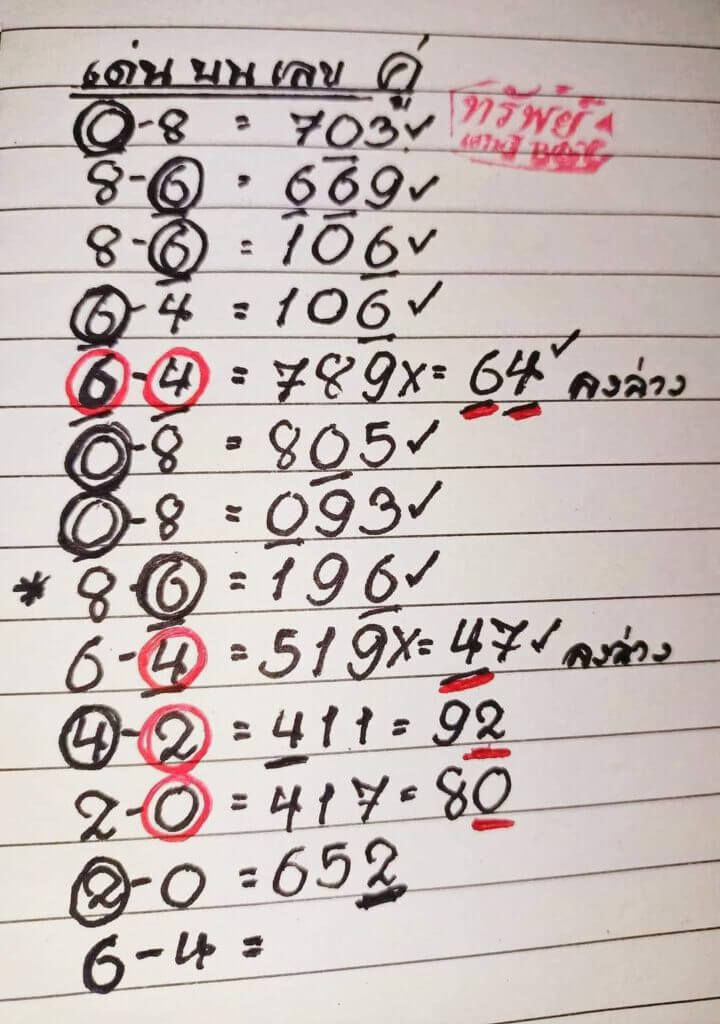 เด่น บน เลข คู่
ทรัพย์
0-8 = 703✓
8-6 = 669✓
8-6 = 106✓
6-4 = 106✓
6-4 = 789x= 64✓ ลงล่าง
0-8 = 805✓
0-8 = 093✓
* 8-6 = 196✓
6-4 = 519x= 47✓ ลงล่าง
4-2 = 411 = 92
2-0 = 417 = 80
2-0 = 652
6-4 =